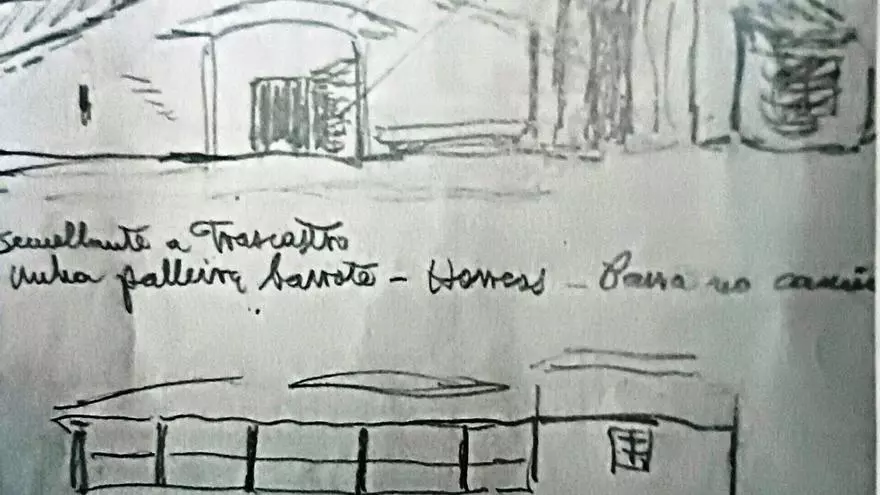 semellante a Trascastro
unha palleira barrote - Horreos - Parra no camiño